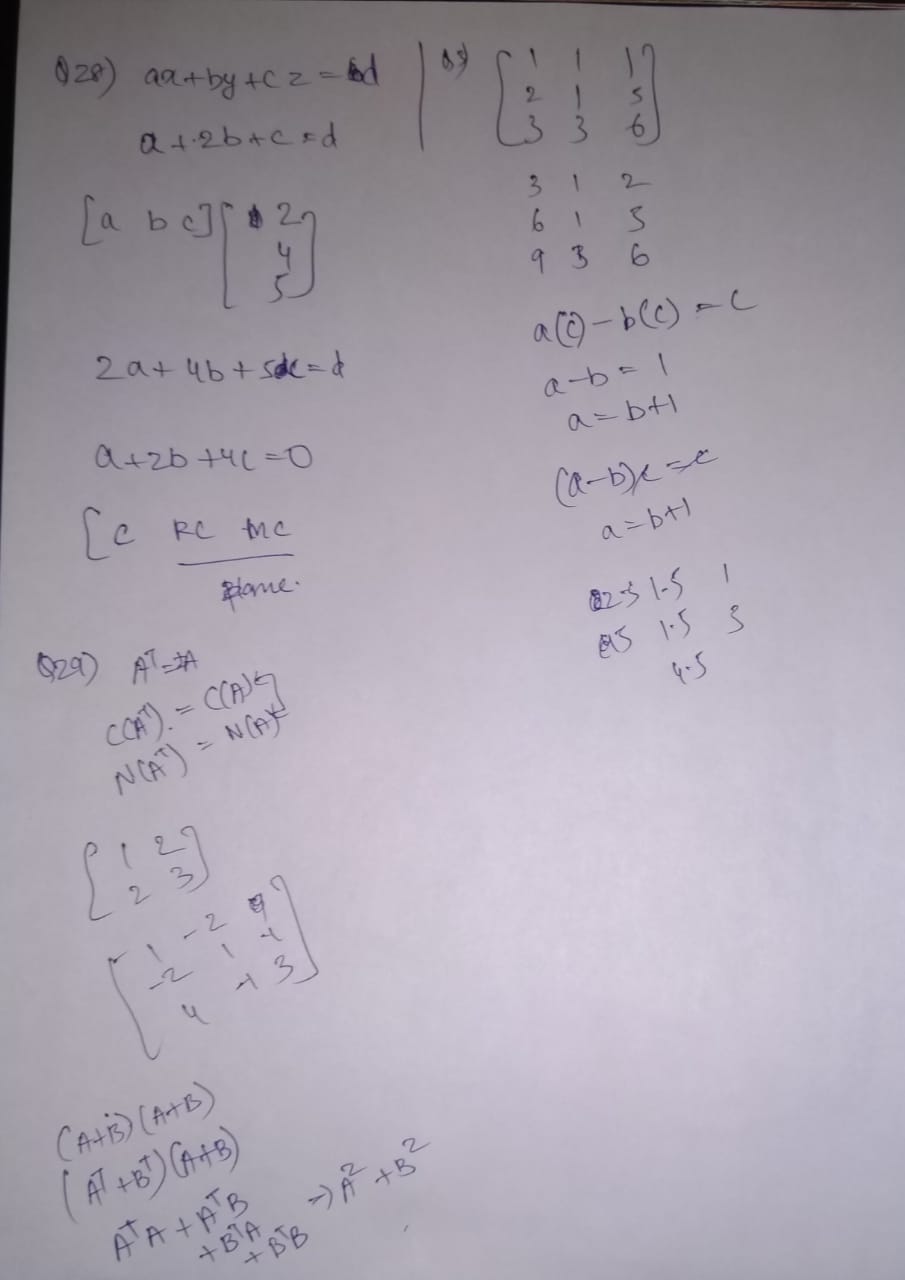 Q28) ax+by+cz=d
a+2b+c=d
[a b c] [ 2
4
5 ]
2a+4b+5c=d
a+2b+4c=0
[c RC MC
plane.
Q29) A^T=A
C(A^T).=C(A)
N(A^T)=N(A)
[1 2
2 3]
[1 -2 4
-2 1
4 3]
(A+B)(A+B)
(A^T+B^T)(A+B)
A^TA+A^TB ⇒A^2+B^2
+B^TA
+B^TB
[1 1 1
2 1 5
3 3 6]
3 1 2
6 1 5
9 3 6
a(c)-b(c)=c
a-b=1
a=b+1
(a-b)c=c
a=b+1
1.5 1
1.5 3
4.5